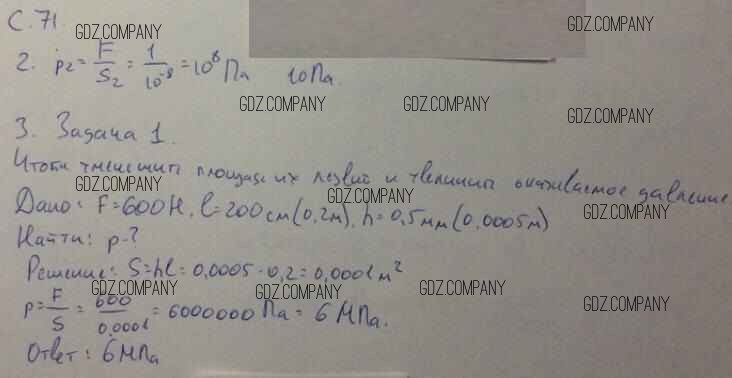 С. 71.
2. p₂ = F/S₂ = 1/10⁻⁸ = 10⁸ Па 10 Па.
3. Задача 1.
Чтобы уменьшить площадь их лезвий и увеличить оказываемое давление
Дано: F = 600 Н, l = 200 см (0,2 м), h = 0,5 мм (0,0005 м)
Найти: p - ?
Решение: S = hl = 0,0005 · 0,2 = 0,0001 м²
p = F/S = 600/0,0001 = 6000000 Па = 6 МПа.
Ответ: 6 МПа
GDZ.COMPANY
GDZ.COMPANY
GDZ.COMPANY
GDZ.COMPANY
GDZ.COMPANY
GDZ.COMPANY
GDZ.COMPANY
GDZ.COMPANY
GDZ.COMPANY
GDZ.COMPANY
GDZ.COMPANY
GDZ.COMPANY